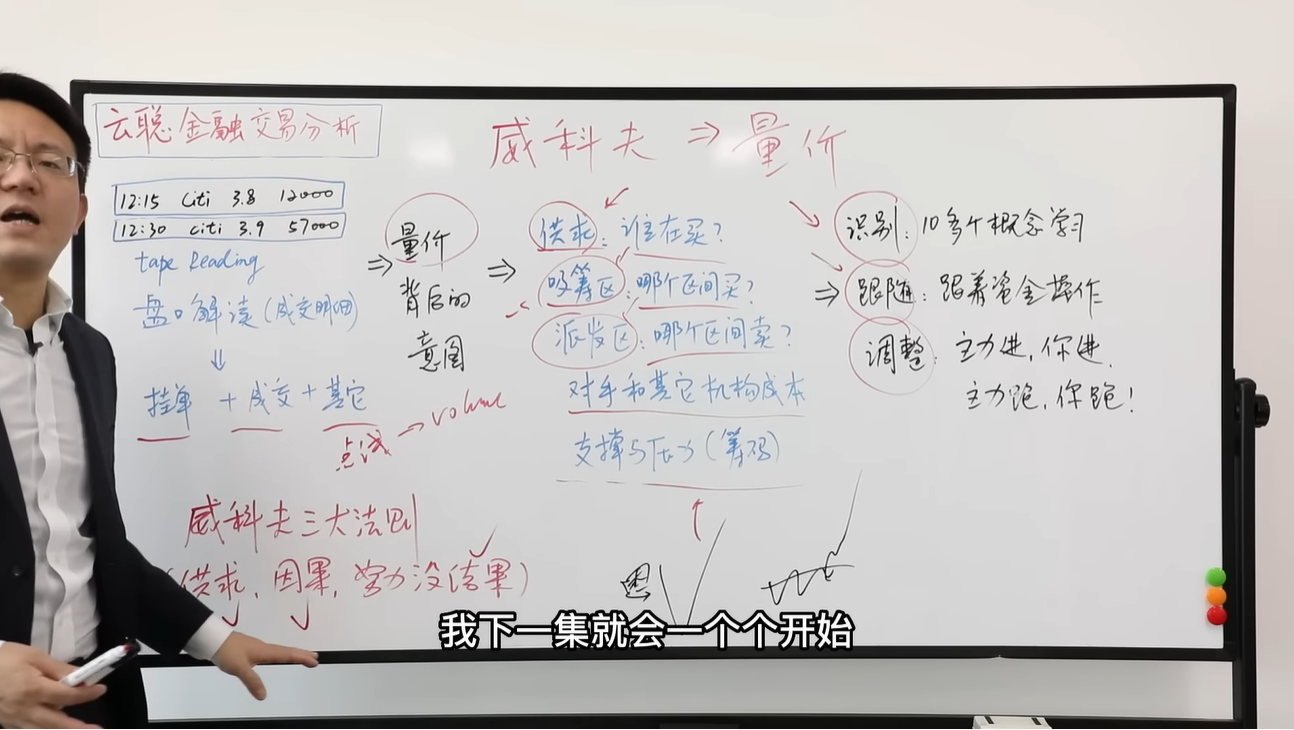 云聪金融交易分析
威科夫 ⇒ 量价
12:15 Citi 3.8 12000
12:30 citi 3.9 57000
tape Reading
盘口解读(成交明细)
挂单 + 成交 + 其它
点试 → volume
威科夫三大法则
(供求, 因果, 努力没结果)
⇒ 量价
背后的
意图
⇒ 供求: 谁在买?
吸筹区: 哪个区间买?
派发区: 哪个区间卖?
对手和其它机构成本
支撑与压力(筹码)
⇒ 识别: 10多个概念学习
跟随: 跟着资金操作
调整: 主力进, 你进.
主力跑, 你跑!
我下一集就会一个个开始